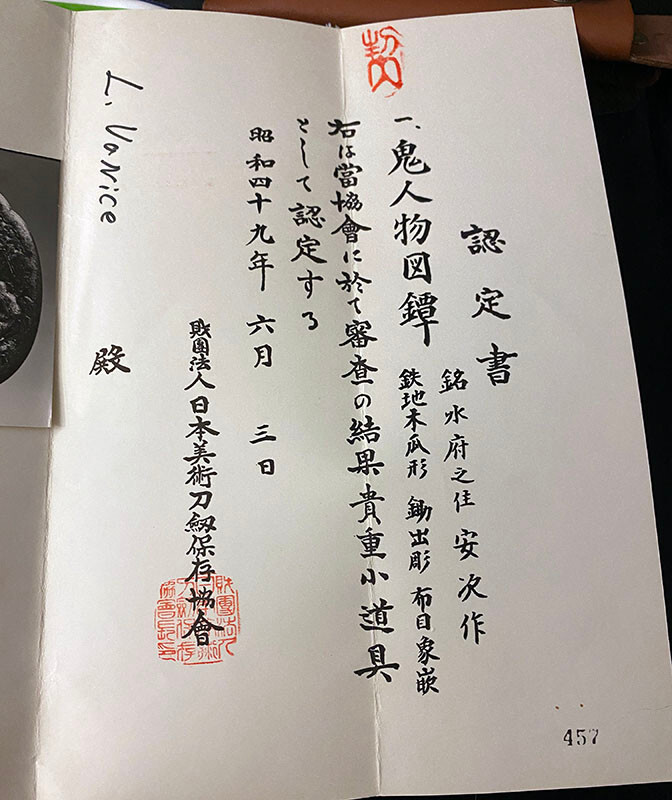 認定書
一、鬼人物図鐔
銘 水府之住 安次作
鉄地木瓜形 鋤出彫 布目象嵌
右は當協會に於て審査の結果貴重小道具
として認定する
昭和四十九年 六月 三日
財團法人日本美術刀劔保存協會
L. Vanice
殿
457